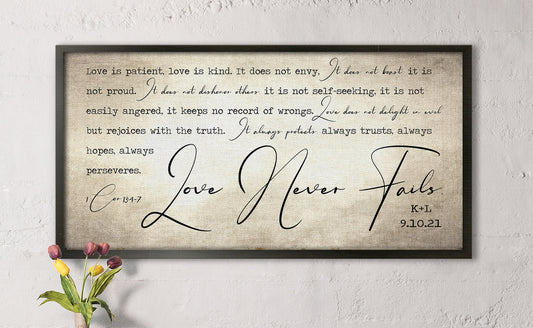 Love is patient, love is kind. It does not envy, It does not boast, it is
not proud. It does not dishonor others, it is not self-seeking, it is not
easily angered, it keeps no record of wrongs. Love does not delight in evil
but rejoices with the truth. It always protects, always trusts, always
hopes, always
perseveres.
Love Never Fails.
1 Cor 13:4-7
K+L
9.10.21